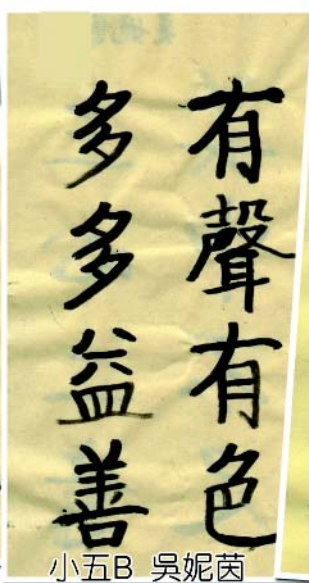 有聲有色
多多益善
小五B 吳妮茵